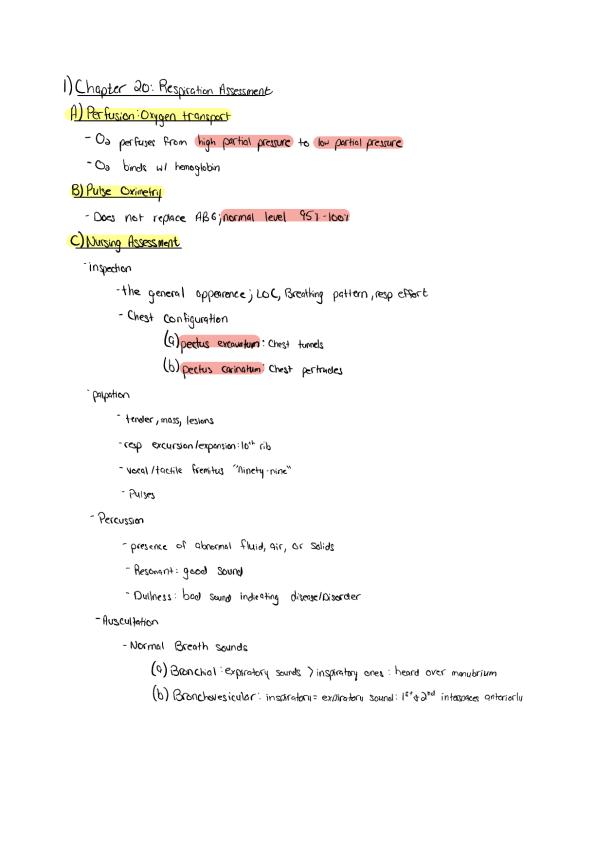 1) Chapter 20: Respiration Assessment
A) Perfusion: Oxygen transport
- O2 perfuses from high partial pressure to low partial pressure
- O2 binds w/ hemoglobin
B) Pulse Oximetry
- Does not replace ABG; normal level 95%-100%
C) Nursing Assessment
- inspection
- the general appearence; LOC, Breathing pattern, resp effort
- Chest configuration
(a) pectus excavatum: Chest tunnels
(b) pectus carinatum: Chest pertrudes
- palpation
- tender, mass, lesions
- resp excursion/expansion: 10th rib
- vocal/tactile fremitus "ninety-nine"
- Pulses
- Percussion
- presence of abnormal fluid, air, or solids
- Resonant: good sound
- Dullness: bad sound indicating disease/Disorder
- Auscultation
- Normal Breath sounds
(a) Bronchial: expiratory sounds > inspiratory ones: heard over manubrium
(b) Bronchovesicular: inspiratory = expiratory sound: 1st & 2nd interspaces anteriorly